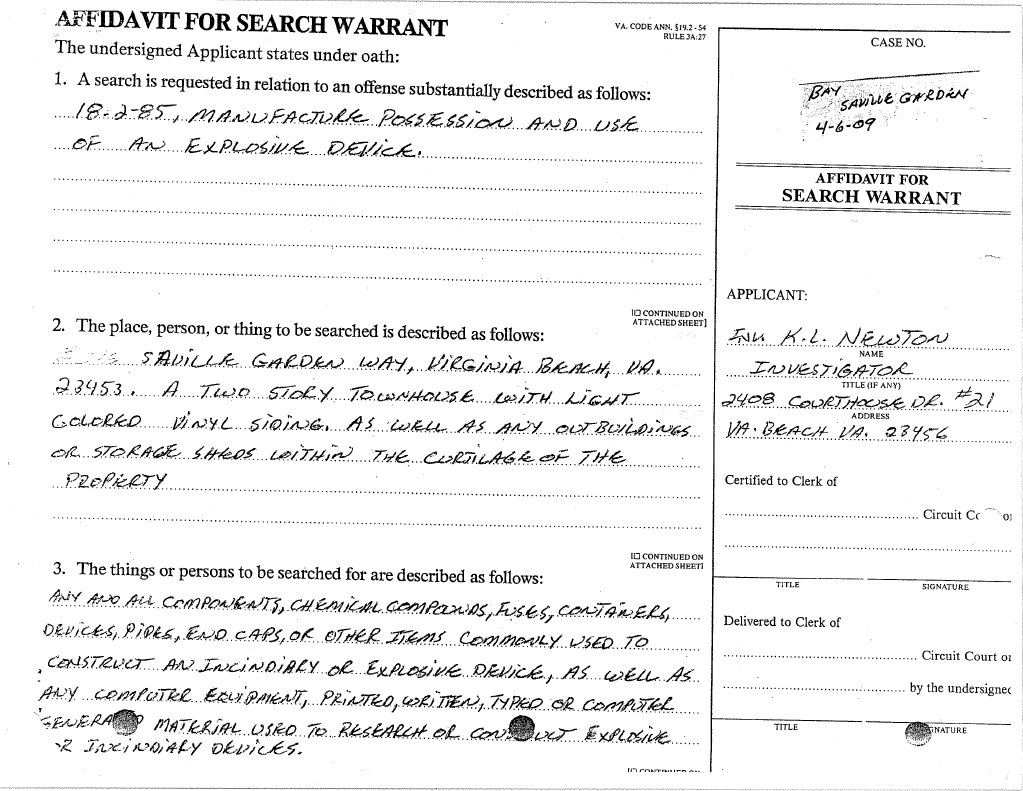 AFFIDAVIT FOR SEARCH WARRANT
VA. CODE ANN. §19.2 - 54
RULE 3A:27
The undersigned Applicant states under oath:
1. A search is requested in relation to an offense substantially described as follows:
18-2-85, MANUFACTURE POSSESSION AND USE
OF AN EXPLOSIVE DEVICE.
[☐ CONTINUED ON
ATTACHED SHEET]
2. The place, person, or thing to be searched is described as follows:
SAVILLE GARDEN WAY, VIRGINIA BEACH, VA.
23453. A TWO STORY TOWNHOUSE WITH LIGHT
COLORED VINYL SIDING. AS WELL AS ANY OUTBUILDINGS
OR STORAGE SHEDS WITHIN THE CURTILAGE OF THE
PROPERTY
[☐ CONTINUED ON
ATTACHED SHEET]
3. The things or persons to be searched for are described as follows:
ANY AND ALL COMPONENTS, CHEMICAL COMPOUNDS, FUSES, CONTAINERS,
DEVICES, PIPES, END CAPS, OR OTHER ITEMS COMMONLY USED TO
CONSTRUCT AN INCINDIARY OR EXPLOSIVE DEVICE, AS WELL AS
ANY COMPUTER EQUIPMENT, PRINTED, WRITTEN, TYPED OR COMPUTER
MATERIAL USED TO RESEARCH OR EXPLOSIVE
INCINDIARY DEVICES.
CASE NO.
BAY
SAVILLE GARDEN
4-6-09
AFFIDAVIT FOR
SEARCH WARRANT
APPLICANT:
INV K.L. NEWTON
NAME
INVESTIGATOR
TITLE (IF ANY)
2408 COURTHOUSE DR. #21
ADDRESS
VA. BEACH VA. 23456
Certified to Clerk of
Circuit
TITLE SIGNATURE
Delivered to Clerk of
Circuit Court
by the
TITLE